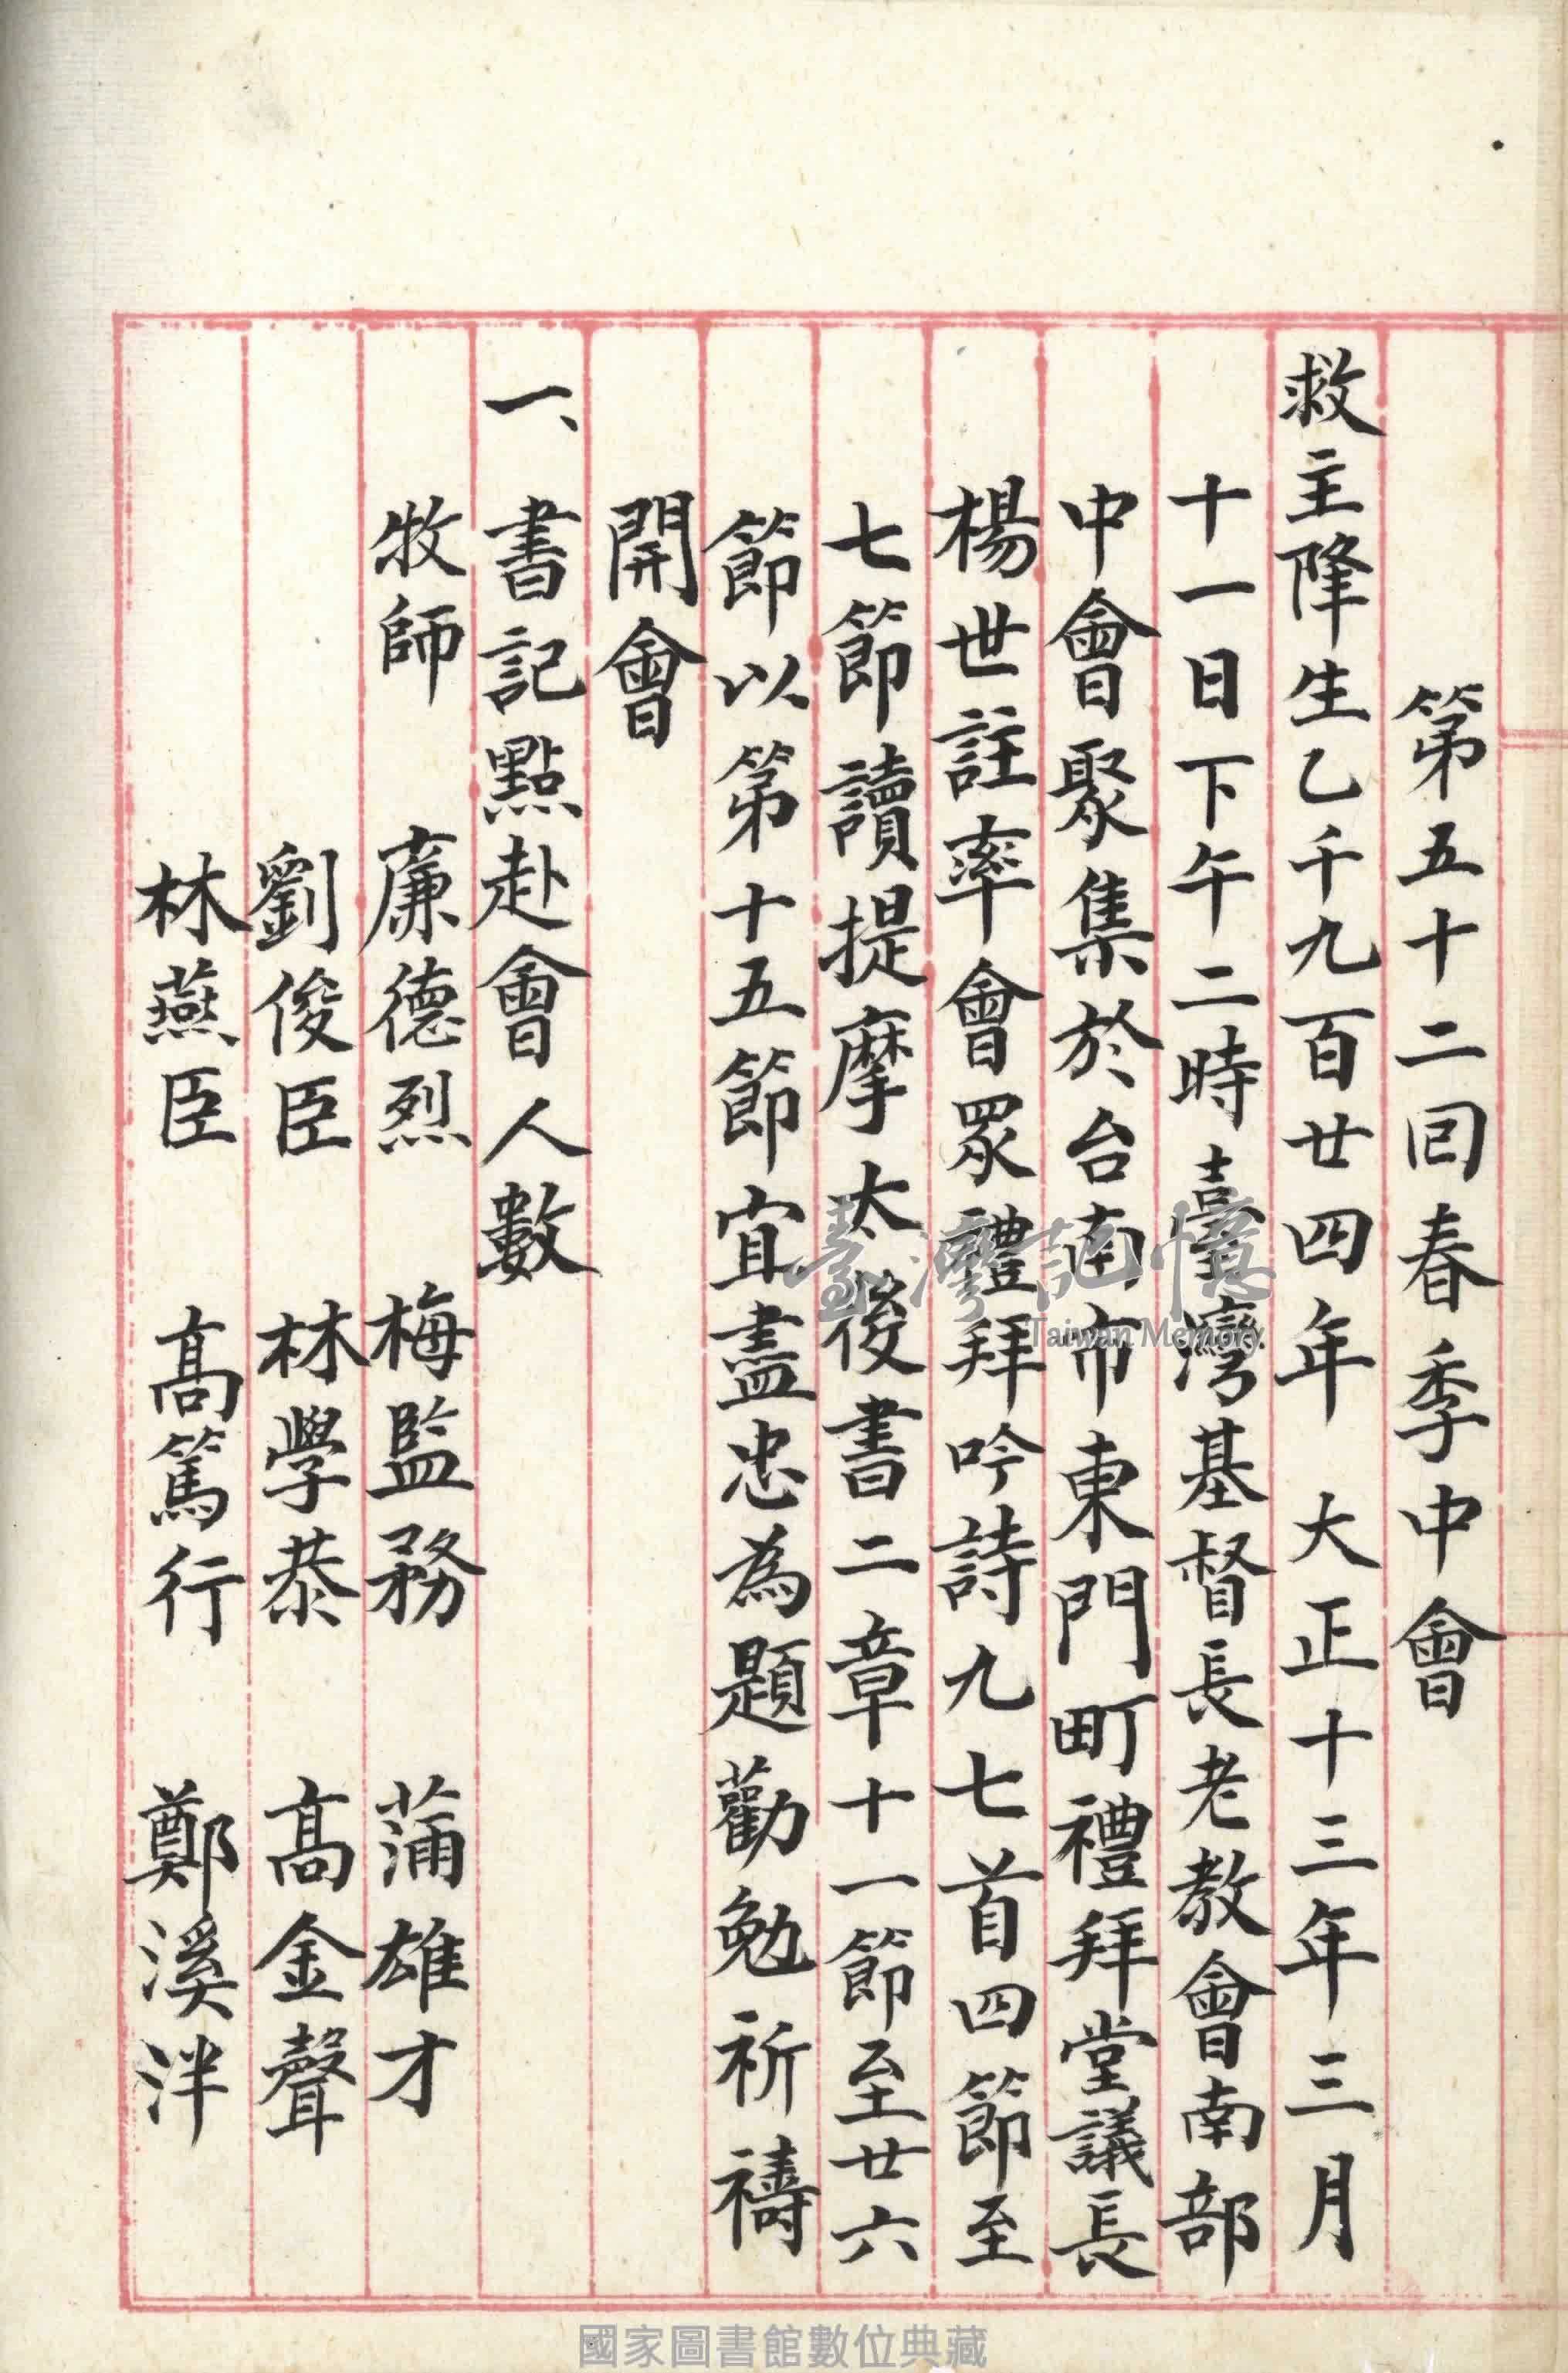 第五十二回春季中會
救主降生乙千九百廿四年 大正十三年三月
十一日下午二時臺灣基督長老教會南部
中會聚集於台南市東門町禮拜堂議長
楊世註率會眾禮拜吟詩九七首四節至
七節讀提摩太後書二章十一節至廿六
節以第十五節宜盡忠為題勸勉祈禱
開會
一、書記點赴會人數
牧師 廉德烈 梅監務 蒲雄才
劉俊臣 林學恭 高金聲
林燕臣 高篤行 鄭溪泮
臺灣記憶
Taiwan Memory
國家圖書館數位典藏